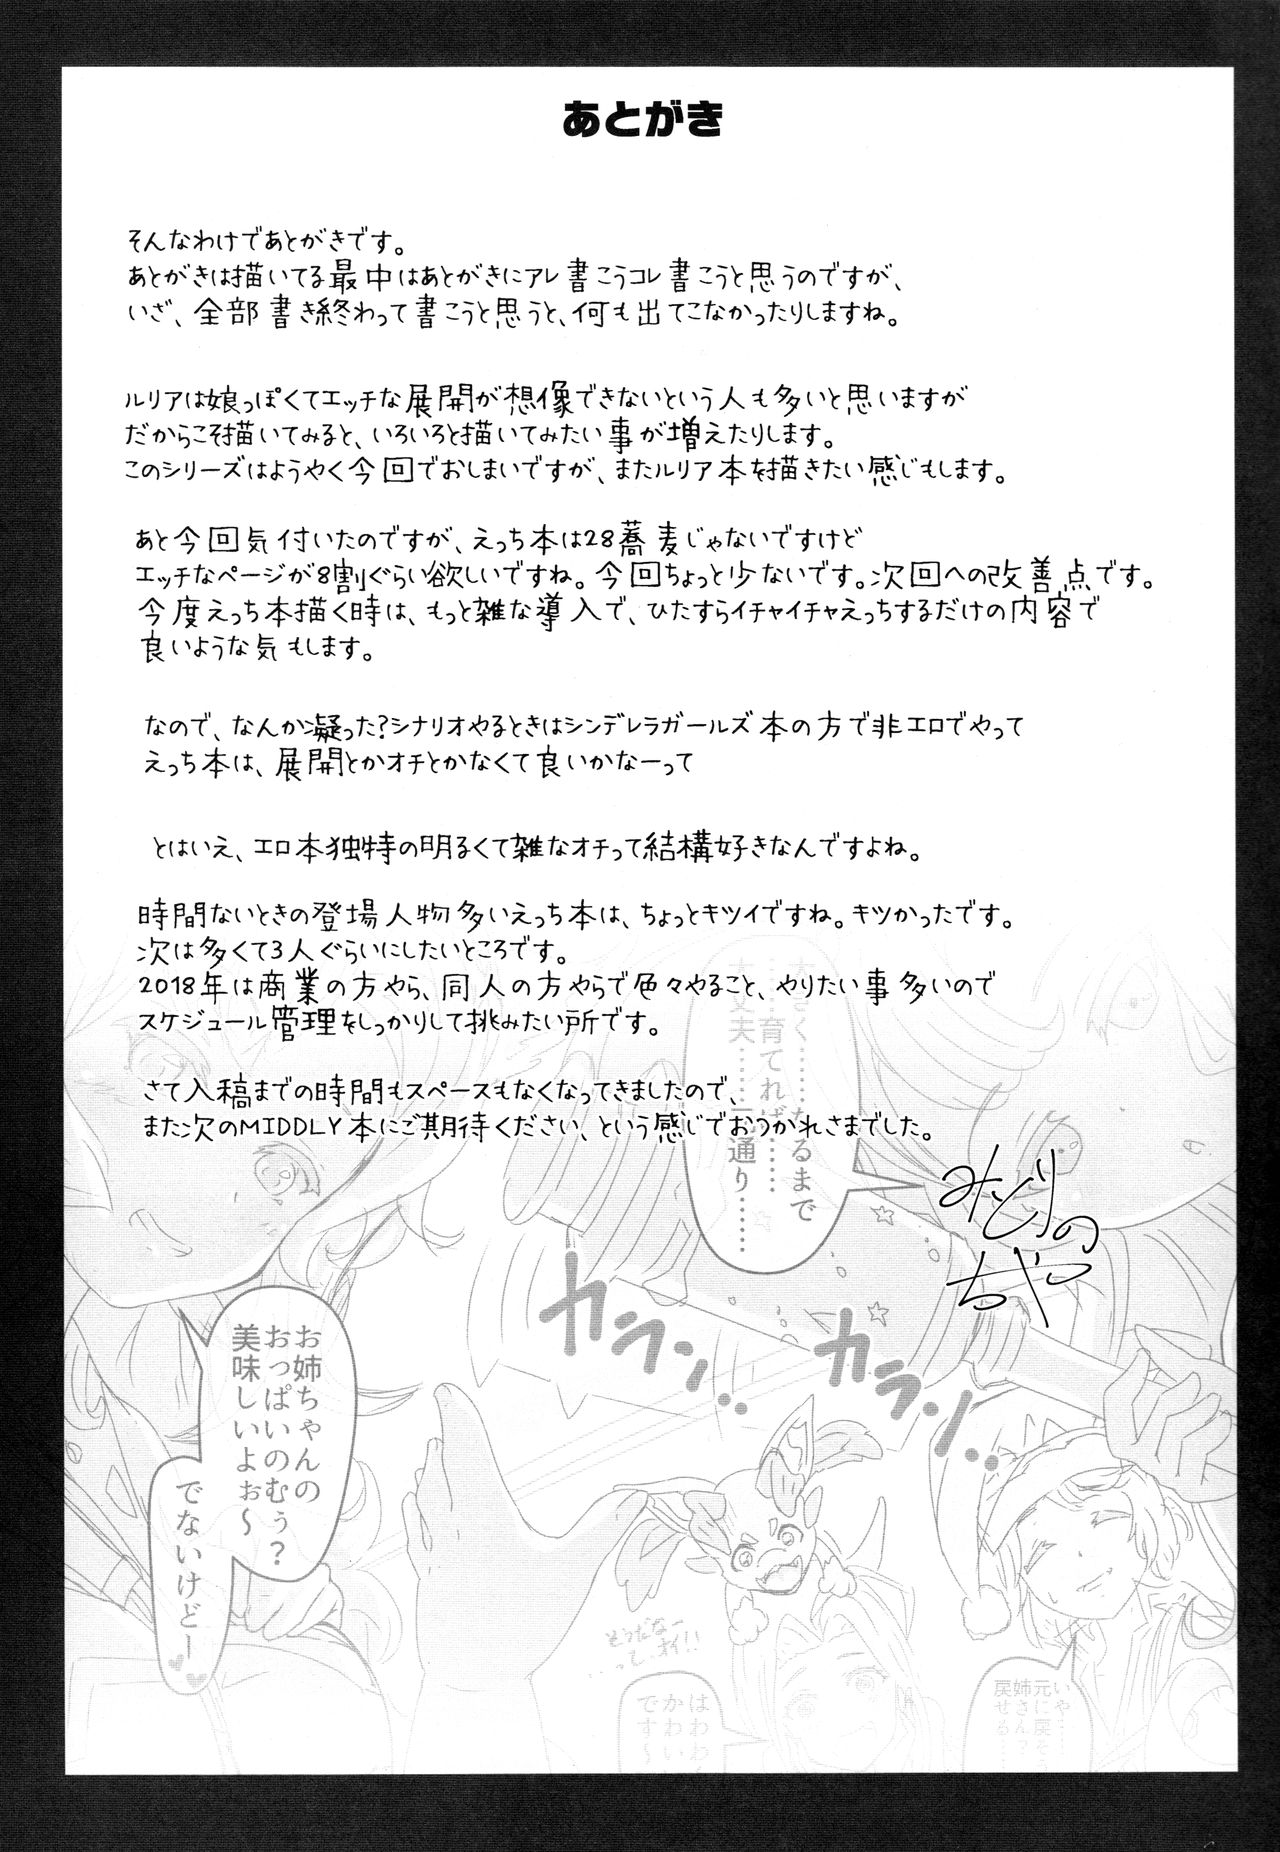 あとがき
そんなわけであとがきです。
あとがきは描いてる最中はあとがきにアレ書こうコレ書こうと思うのですが、
いざ、全部書き終わって書こうと思うと、何も出てこなかったりしますね。
ルリアは娘っぽくてエッチな展開が想像できないという人も多いと思いますが
だからこそ描いてみると、いろいろと描いてみたい事が増えたりします。
このシリーズはようやく今回でおしまいですが、またルリア本を描きたい感じもします。
あと今回気付いたのですが、えっち本は28蕎麦じゃないですけど
エッチなページが8割ぐらい欲しいですね。今回ちょっと少ないです。次回への改善点です。
今度えっち本描く時は、もっと雑な導入で、ひたすらイチャイチャえっちするだけの内容で
良いような気もします。
なので、なんか凝った?シナリオやるときはシンデレラガールズ本の方で非エロでやって
えっち本は、展開とかオチとかなくて良いかなーって
とはいえ、エロ本独特の明るくて雑なオチって結構好きなんですよね。
時間ないときの登場人物多いえっち本は、ちょっとキツイですね。キツかったです。
次は多くて3人ぐらいにしたいところです。
2018年は商業の方やら、同人の方やらで色々やること、やりたい事多いので
スケジュール管理をしっかりして挑みたい所です。
さて入稿までの時間もスペースもなくなってきましたので、
また次のMIDDLY本にご期待ください、という感じでおつかれさまでした。
みどりの
ちや
く………なるまで
………育てれば……
丈夫………通り……
カラン‥
カラン‥
お姉ちゃんの
おっぱいのむぅ?
美味しいよぉ～
でないけどー
そうだなー
…って、オイ!!
はわわ
かわいい
です～
いや……
元に戻そう
姉さん?
戻せる…